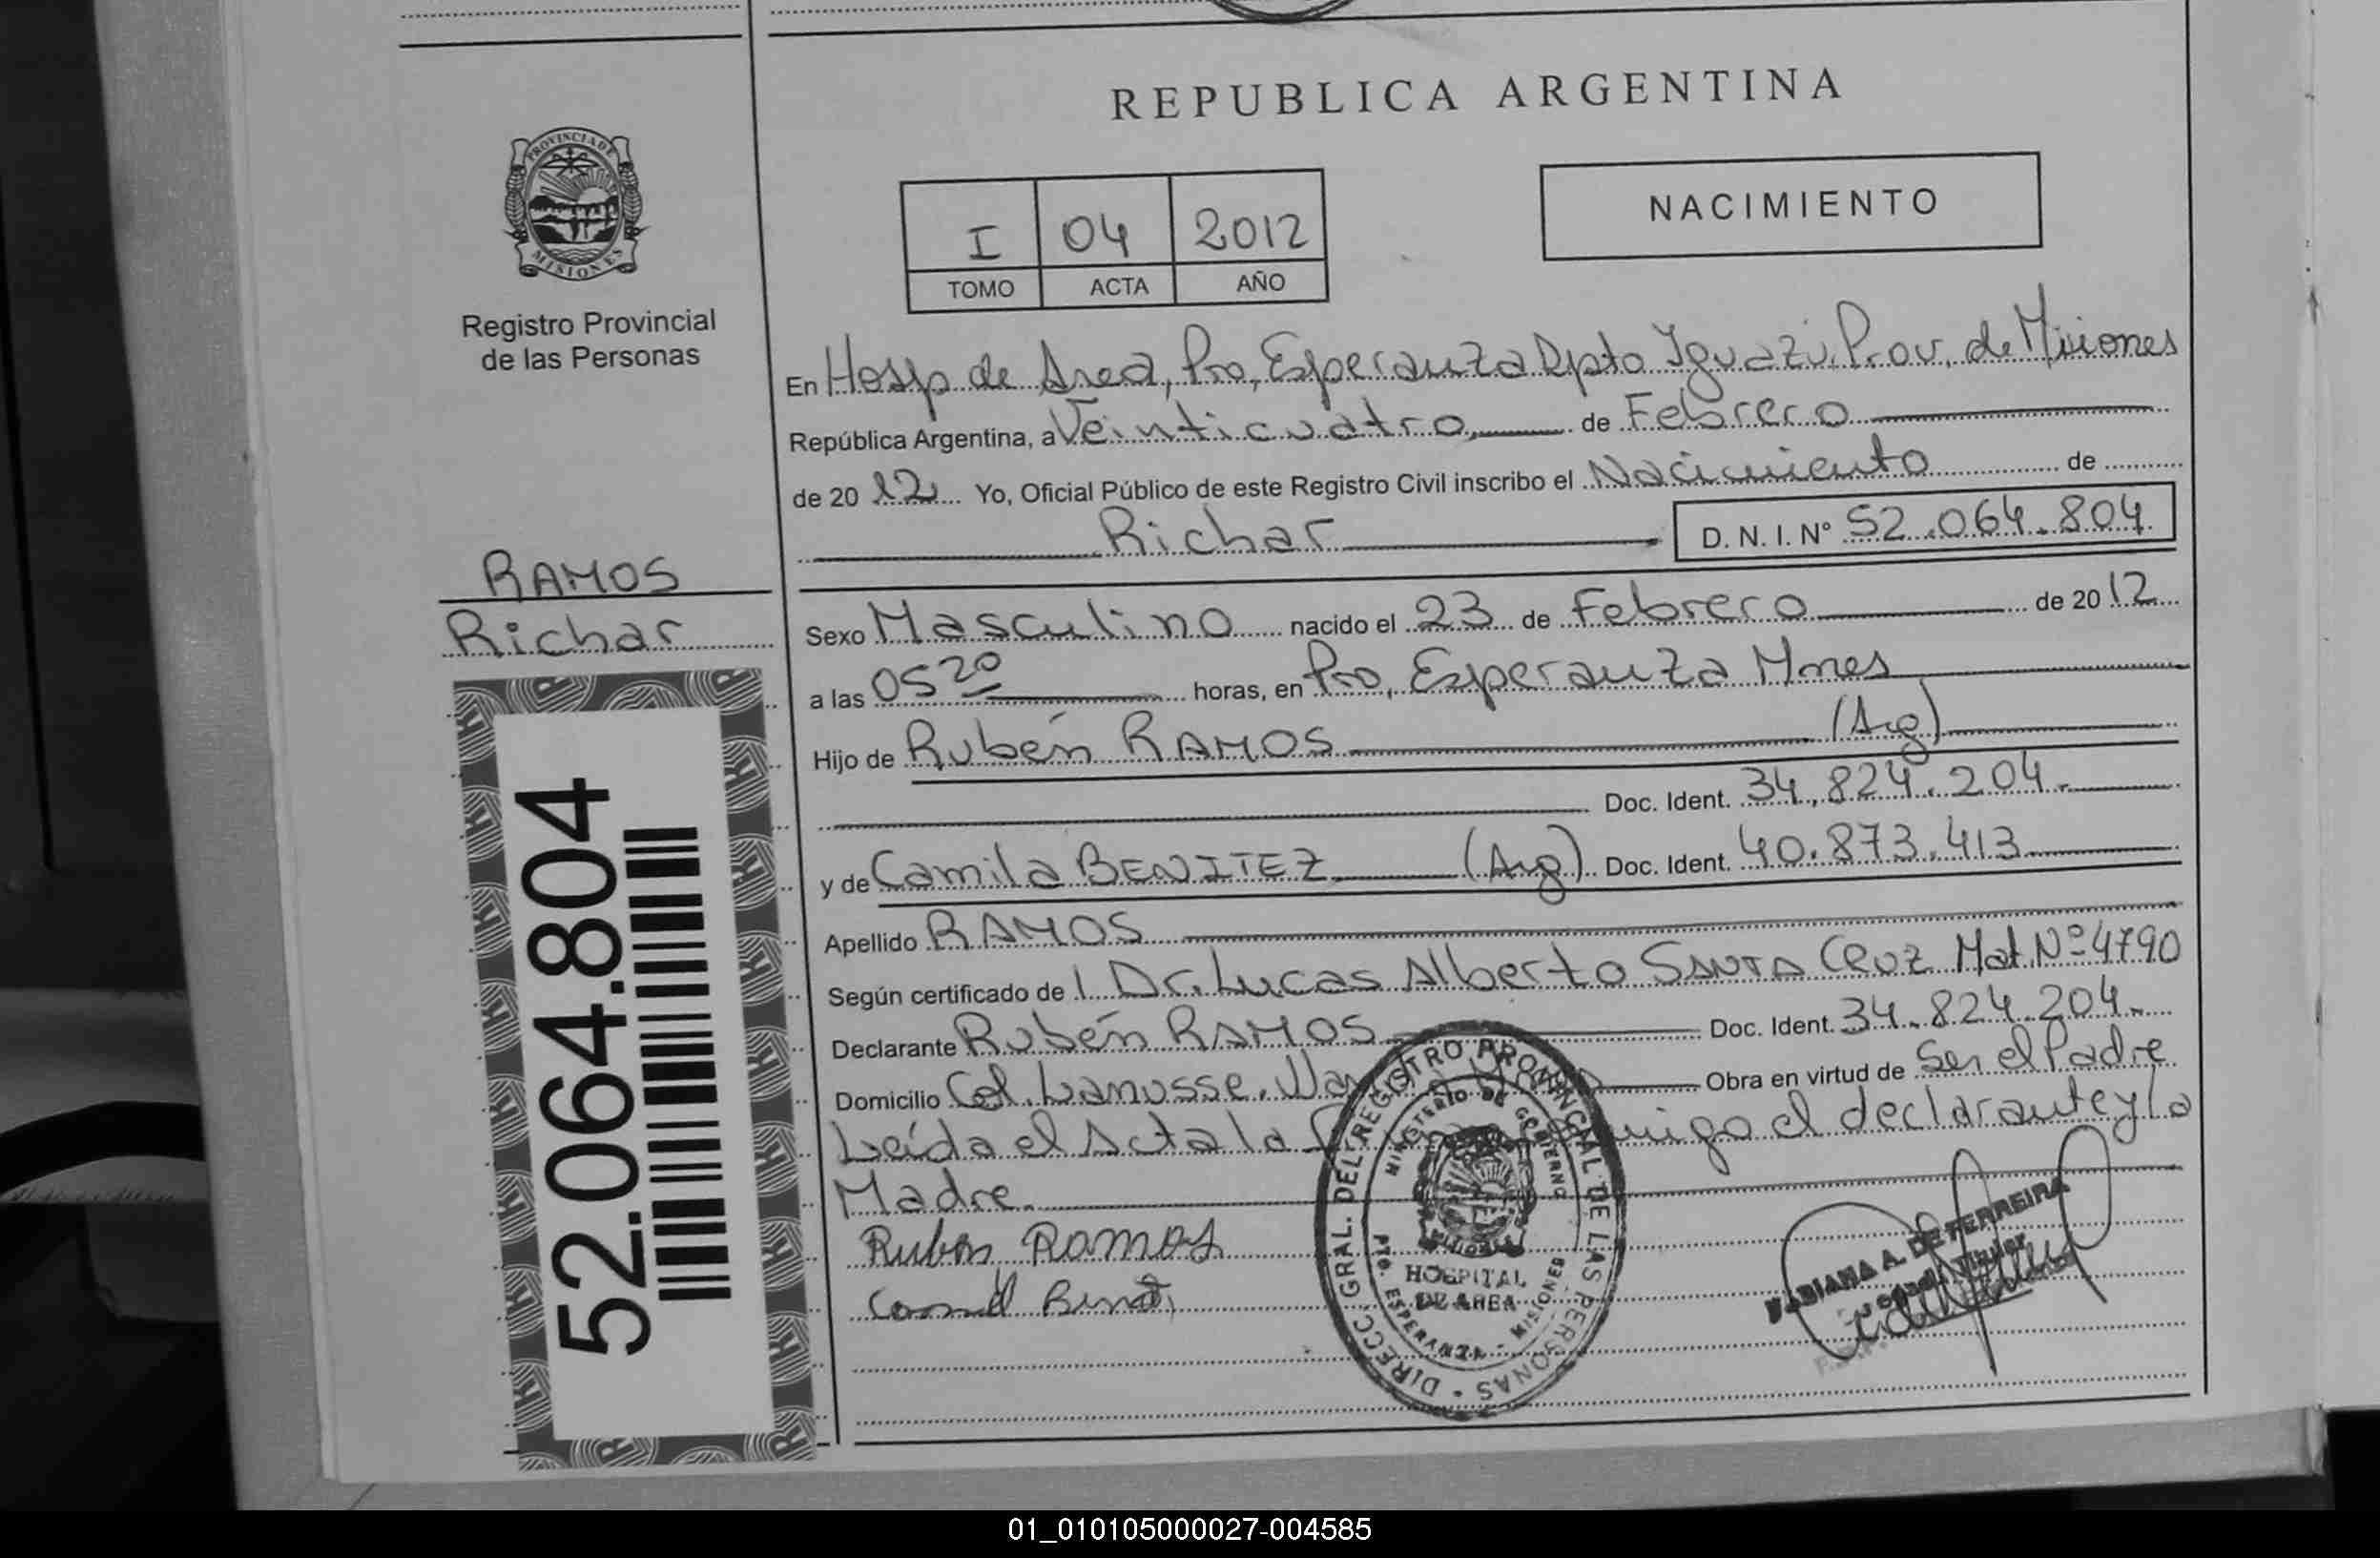 REPUBLICA ARGENTINA
PROVINCIA DE
MISIONES
Registro Provincial
de las Personas
I 04 2012
TOMO ACTA AÑO
NACIMIENTO
En Hosp de Area, Pto, Esperanza Dpto Iguazú, Prov, de Misiones
República Argentina, a Veinticuatro de Febrero
de 20 12 Yo, Oficial Público de este Registro Civil inscribo el Nacimiento de
Richar D. N. I. Nº 52.064.804
RAMOS
Richar
Sexo Masculino nacido el 23 de Febrero de 20 12
a las 05 20 horas, en Pto, Esperanza Mnes
Hijo de Rubén RAMOS (Arg)
Doc. Ident. 34.824.204.
y de Camila BENITEZ (Arg) Doc. Ident. 40.873.413
Apellido RAMOS
Según certificado de l Dr. Lucas Alberto SANTA CRUZ Mat Nº 4790
Declarante Rubén RAMOS Doc. Ident. 34.824.204.
Domicilio Col. Lanusse, Obra en virtud de Ser el Padre
Leída el Acta la el declarante y la
Madre.
Ruben Ramos
52.064.804
DIRECC. GRAL. DEL REGISTRO PROVINCIAL DE LAS PERSONAS
MINISTERIO DE GOBIERNO
HOSPITAL
DE AREA
PTO. ESPERANZA - MISIONES
FABIANA A. DE FERREIRA
01_010105000027-004585